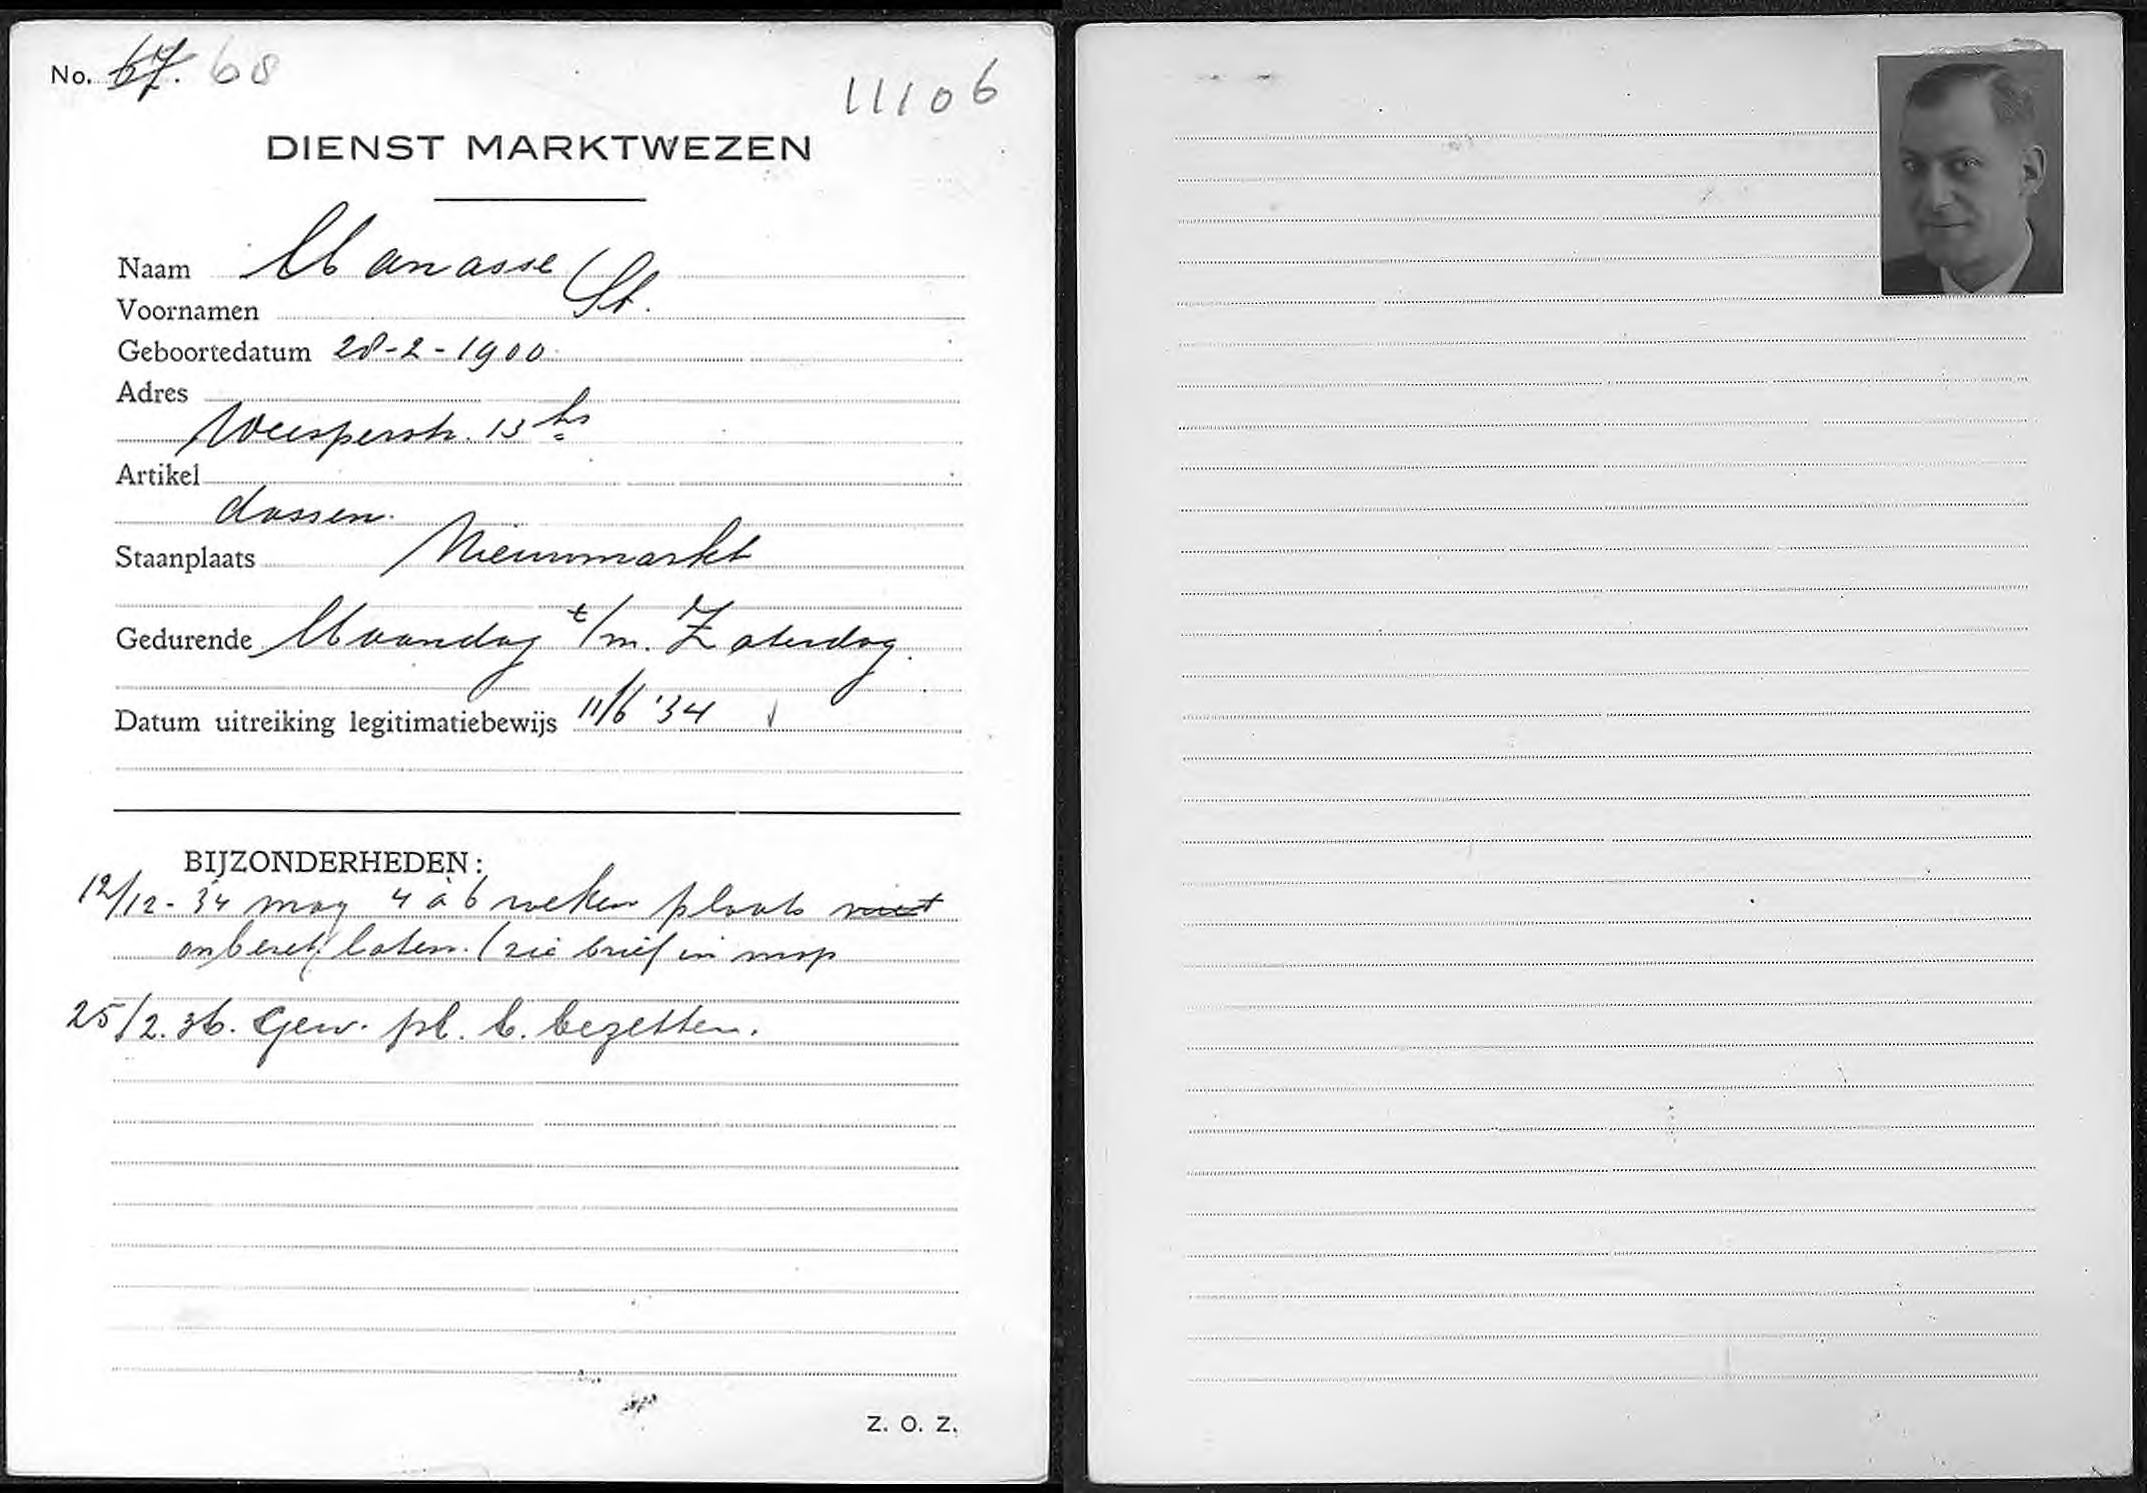 No. 67. 68
11106
DIENST MARKTWEZEN
Naam Manasse
Voornamen St.
Geboortedatum 28-2-1900
Adres
Weesperstr. 13 hs
Artikel
dassen.
Staanplaats Nieuwmarkt
Gedurende Maandag t/m. Zaterdag.
Datum uitreiking legitimatiebewijs 11/6 '34
BIJZONDERHEDEN:
12/12-34 mag 4 à 6 weken plaats niet
onbezet laten. (zie brief in map
25/2.36. Gew. pl. t. bezetten.
Z. O. Z.